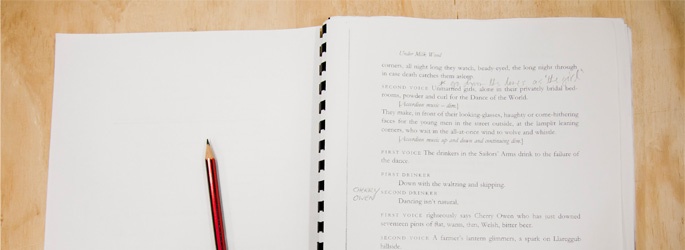 Under Milk Wood
corners, all night long they watch, beady-eyed, the long night through
in case death catches them asleep.
SECOND VOICE Unmarried girls, alone in their privately bridal bed-
rooms, powder and curl for the Dance of the World.
[Accordion music – dim.]
They make, in front of their looking-glasses, haughty or come-hithering
faces for the young men in the street outside, at the lamplit leaning
corners, who wait in the all-at-once wind to wolve and whistle.
[Accordion music up and down and continuing dim.]
FIRST VOICE The drinkers in the Sailors' Arms drink to the failure of
the dance.
FIRST DRINKER
Down with the waltzing and skipping.
CHERRY
OWEN
SECOND DRINKER
Dancing isn't natural.
FIRST VOICE righteously says Cherry Owen who has just downed
seventeen pints of flat, warm, thin, Welsh, bitter beer.
SECOND VOICE A farmer's lantern glimmers, a spark on Llareggub
hillside.